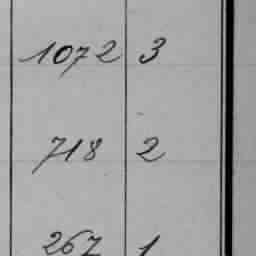 1072 3
718 2
267 1